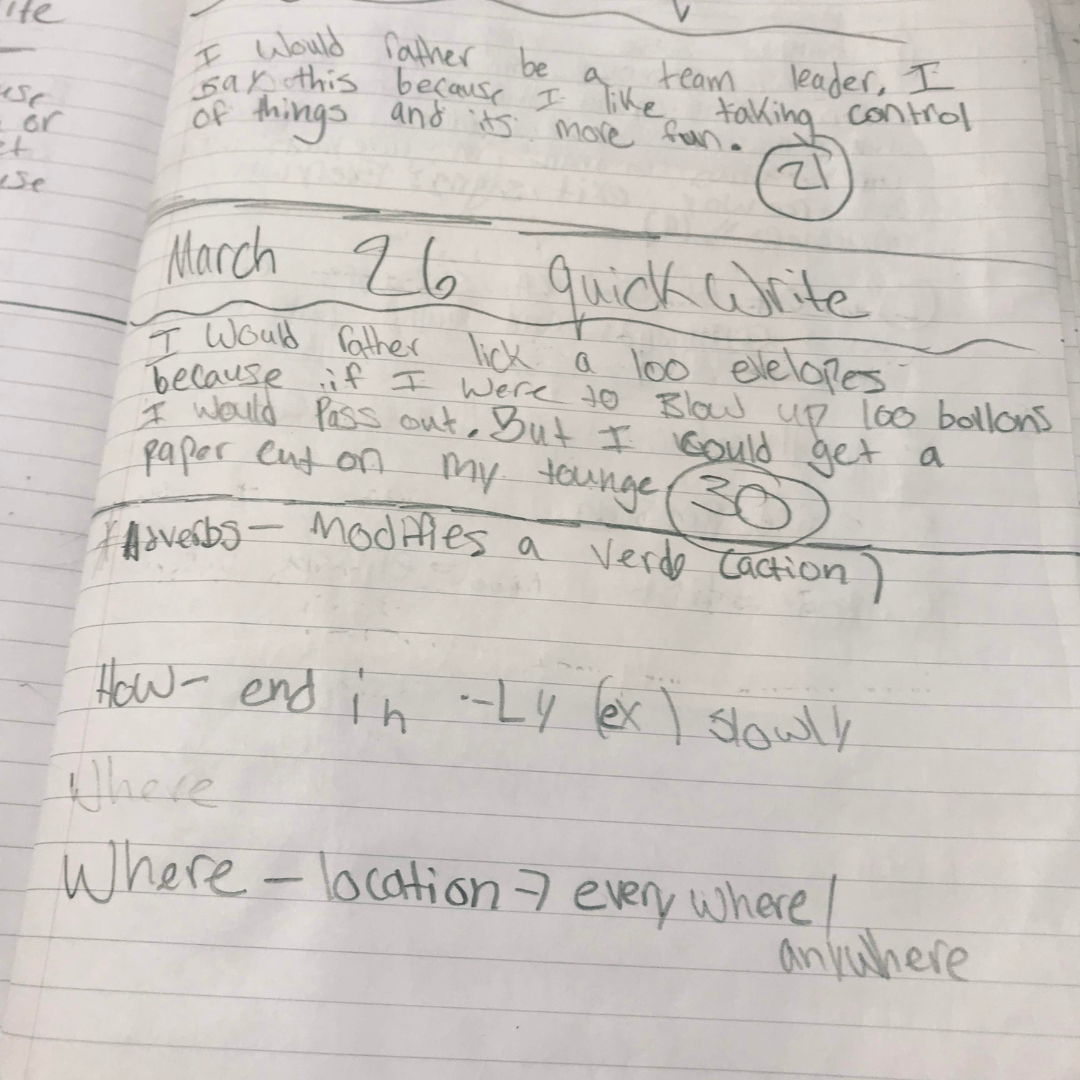 ite
use
or
et
use
I Would rather be a team leader, I
say this because I like taking control
of things and its more fun.
21
March 26 quick Write
I Would rather lick a 100 evelopes
because if I were to Blow up 100 ballons
I would Pass out. But I could get a
paper cut on my tounge
30
*Adverbs - Modifies a verb (action)
How - end in -Ly (ex) slowly
Where
Where - location → everywhere/
anywhere